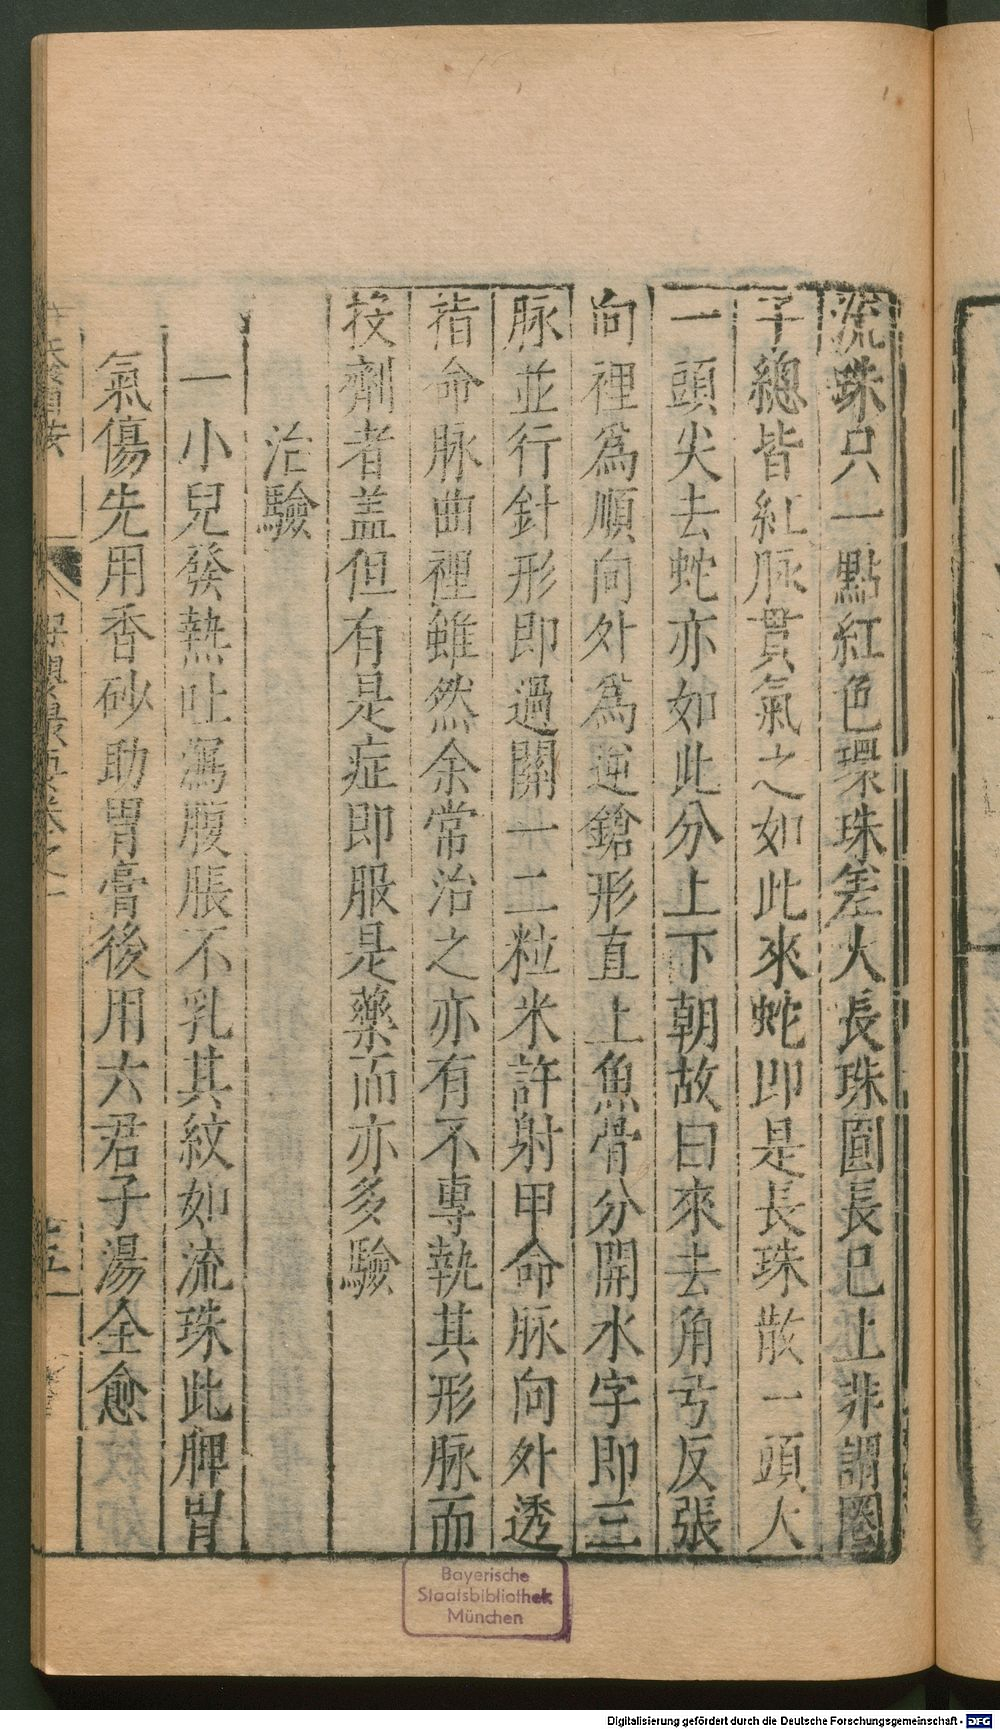 流珠只一點紅色環珠差大長珠圓長已上非謂圈
子總皆紅脉貫氣之如此來蛇即是長珠散一頭大
一頭尖去蛇亦如此分上下朝故曰來去角弓反張
向裡爲順向外爲逆鎗形直上魚骨分開水字即三
脉並行針形即過關一二粒米許射甲命脉向外透
指命脉曲裡雖然余常治之亦有不專執其形脉而
投劑者盖但有是症即服是藥而亦多驗
治驗
一小兒發熱吐瀉腹脹不乳其紋如流珠此脾胃
氣傷先用香砂助胃膏後用六君子湯全愈
Bayerische
Staatsbibliothek
München
Digitalisierung gefördert durch die Deutsche Forschungsgemeinschaft - DFG